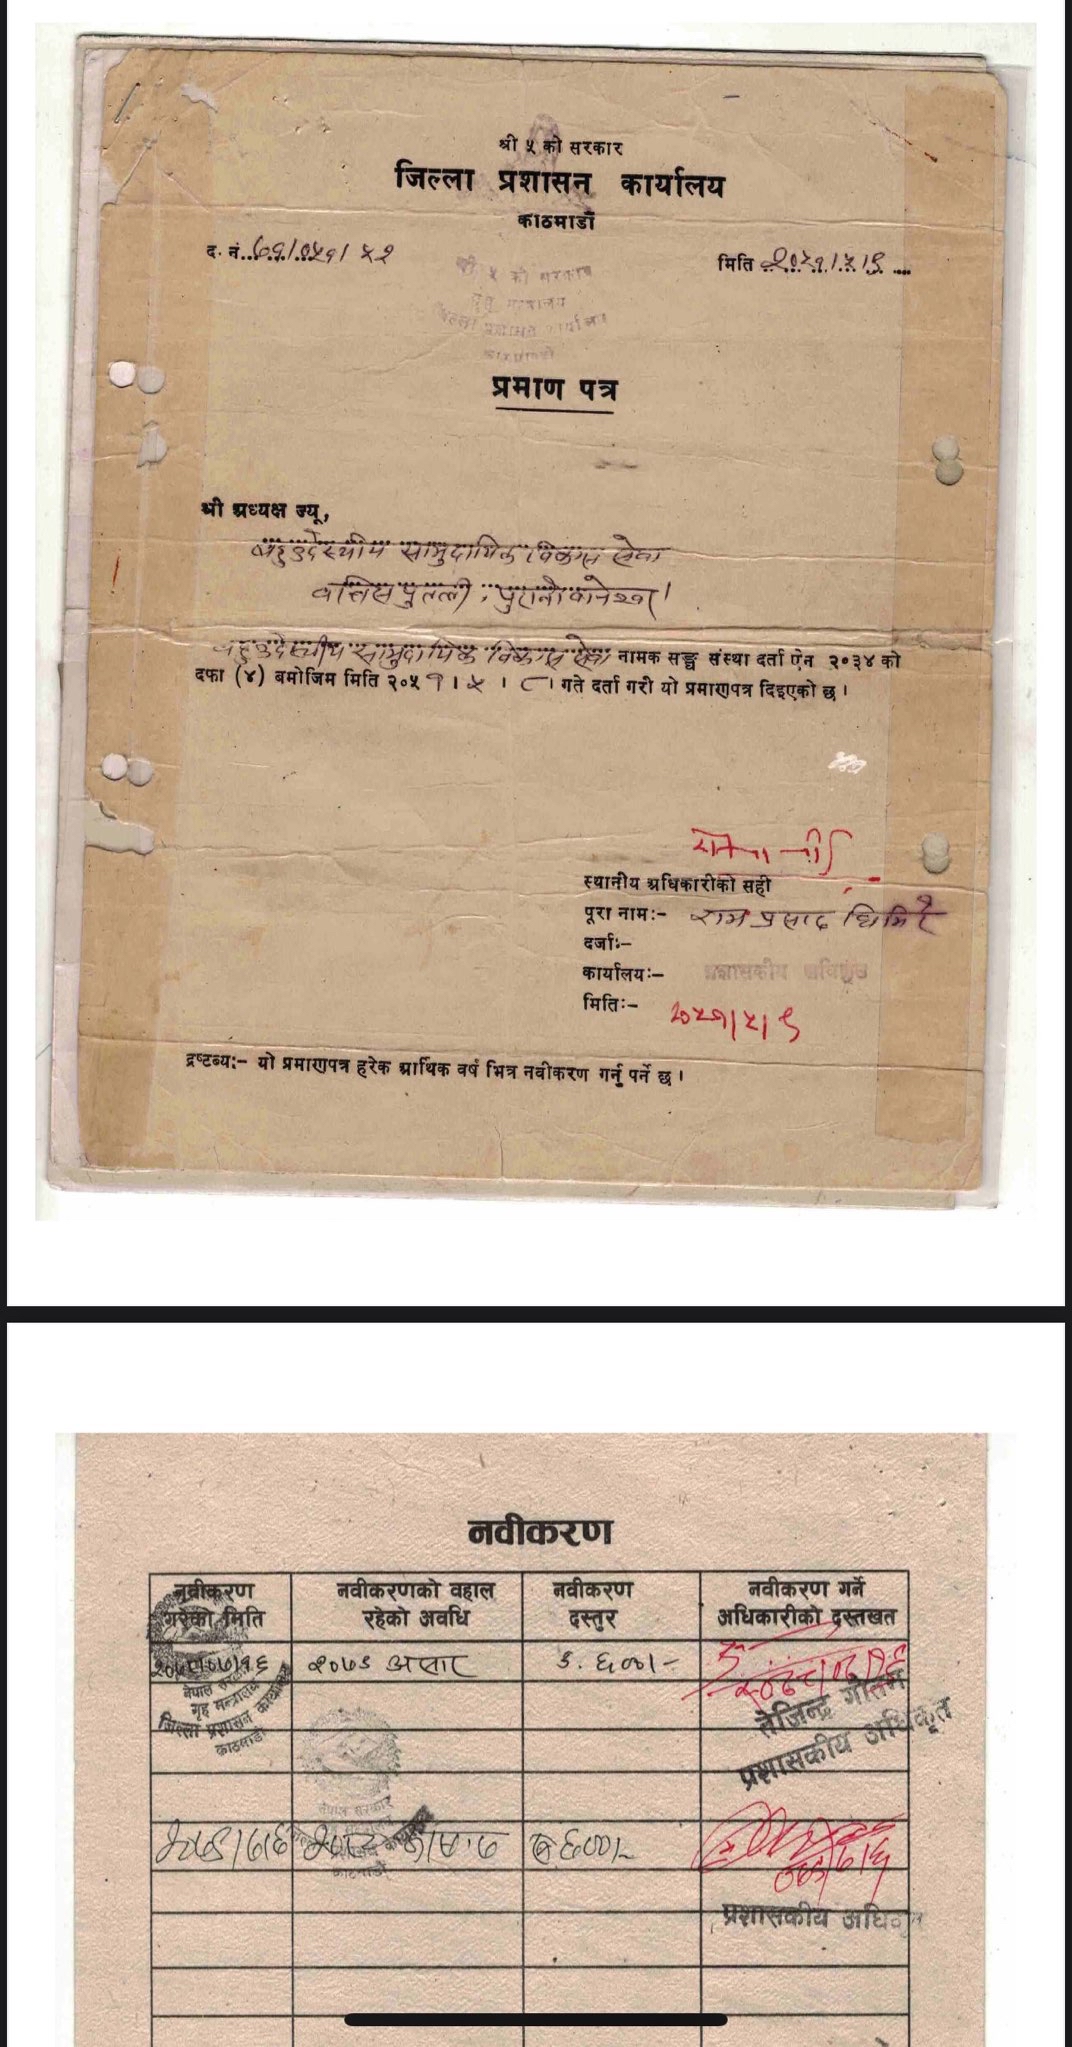 श्री ५ को सरकार
जिल्ला प्रशासन कार्यालय
काठमाडौं
द. नं. ७१/०५१/५२
मिति २०५१/५/९
श्री ५ को सरकार
गृह मन्त्रालय
जिल्ला प्रशासन कार्यालय
काठमाडौं
प्रमाण पत्र
श्री अध्यक्ष ज्यू,
बहुउद्देश्यीय सामुदायिक विकास सेवा
वत्तिसपुतली, पुरानोवानेश्वर।
बहुउद्देश्यीय सामुदायिक विकास सेवा नामक सङ्घ संस्था दर्ता ऐन २०३४ को
दफा (४) बमोजिम मिति २०५१।५।८। गते दर्ता गरी यो प्रमाणपत्र दिइएको छ।
स्थानीय अधिकारीको सही
पूरा नाम:- राम प्रसाद घिमिरे
दर्जा:-
कार्यालय:- प्रशासकीय अधिकृत
मिति:- २०५१/५/९
द्रष्टव्य:- यो प्रमाणपत्र हरेक आर्थिक वर्ष भित्र नवीकरण गर्नु पर्ने छ।
नवीकरण
नवीकरण गरेको मिति
नवीकरणको वहाल रहेको अवधि
नवीकरण दस्तुर
नवीकरण गर्ने अधिकारीको दस्तखत
असार
रु. ६००।-
नेपाल सरकार
गृह मन्त्रालय
जिल्ला प्रशासन कार्यालय
काठमाडौं
तेजिन्द्र गौतम
प्रशासकीय अधिकृत
नेपाल सरकार
काठमाडौं
रु ६००।-
प्रशासकीय अधिकृत